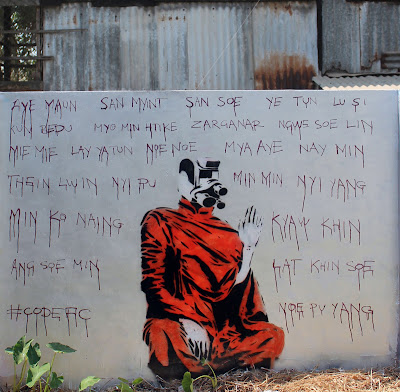 AYE YAUN SAN MYINT SAN SOE YE TUN LU SI
KUN BEDU MYO MIN HTIKE ZARGANAR NGWE SOE LIN
MIE MIE LAY YA TUN NOE NOE MYA AYE NAY MIN
THEIN LWIN NYI PU MIN MIN NYI YANG
MIN KO NAING KYAW KHIN
ANG SOE MIN HAT KHIN SOE
#CODEFC NOE PU YANG